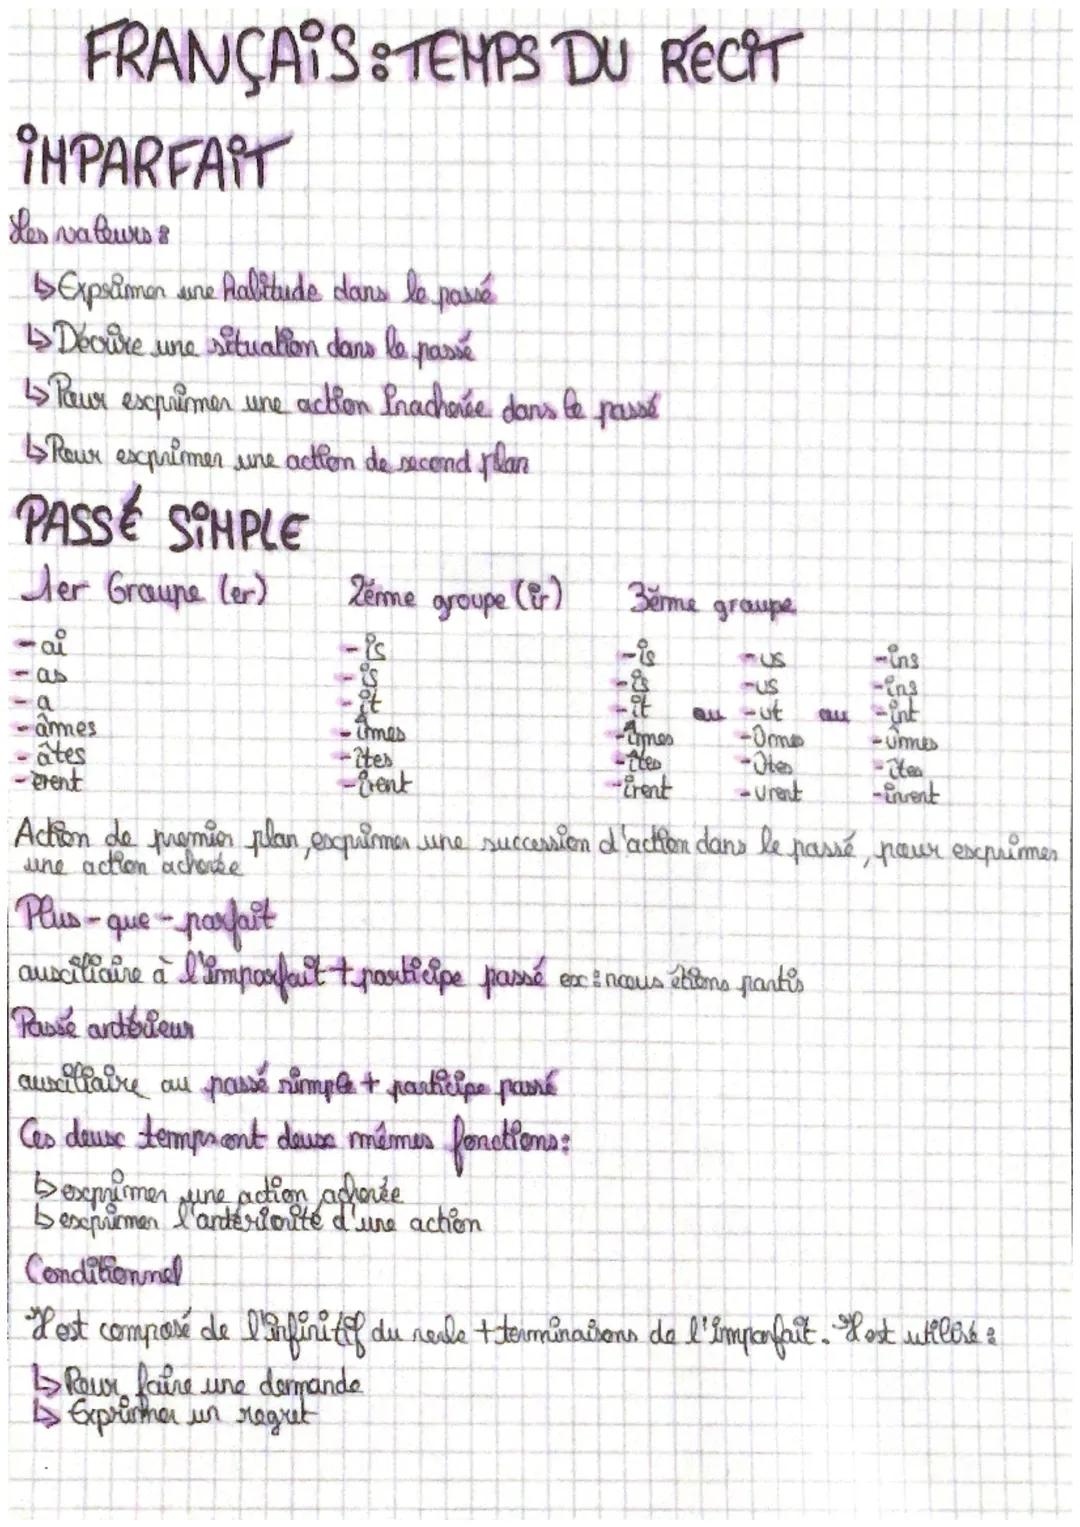 FRANÇAIS : TEMPS DU RÉCIT
IMPARFAIT
Les valeurs :
↳ Exprimer une habitude dans le passé
↳ Décrire une situation dans le passé
↳ Pour exprimer une action inachevée dans le passé
↳ Pour exprimer une action de second plan
PASSÉ SIMPLE
1er Groupe (er) 2ème groupe (ir) 3ème groupe
-ai -is -is -us -ins
-as -is -is -us -ins
-a -it -it ou -ut ou -int
-âmes -îmes -îmes -ûmes -înmes
-âtes -îtes -îtes -ûtes -îtes
-èrent -irent -irent -urent -inrent
Action de premier plan, exprimer une succession d'action dans le passé, pour exprimer
une action achevée
Plus-que-parfait
auxiliaire à l'imparfait + participe passé ex : nous étions partis
Passé antérieur
auxiliaire au passé simple + participe passé
Ces deux temps ont deux mêmes fonctions :
↳ exprimer une action achevée
↳ exprimer l'antériorité d'une action
Conditionnel
Il est composé de l'infinitif du verbe + terminaisons de l'imparfait. Il est utilisé :
↳ Pour faire une demande
↳ Exprimer un regret